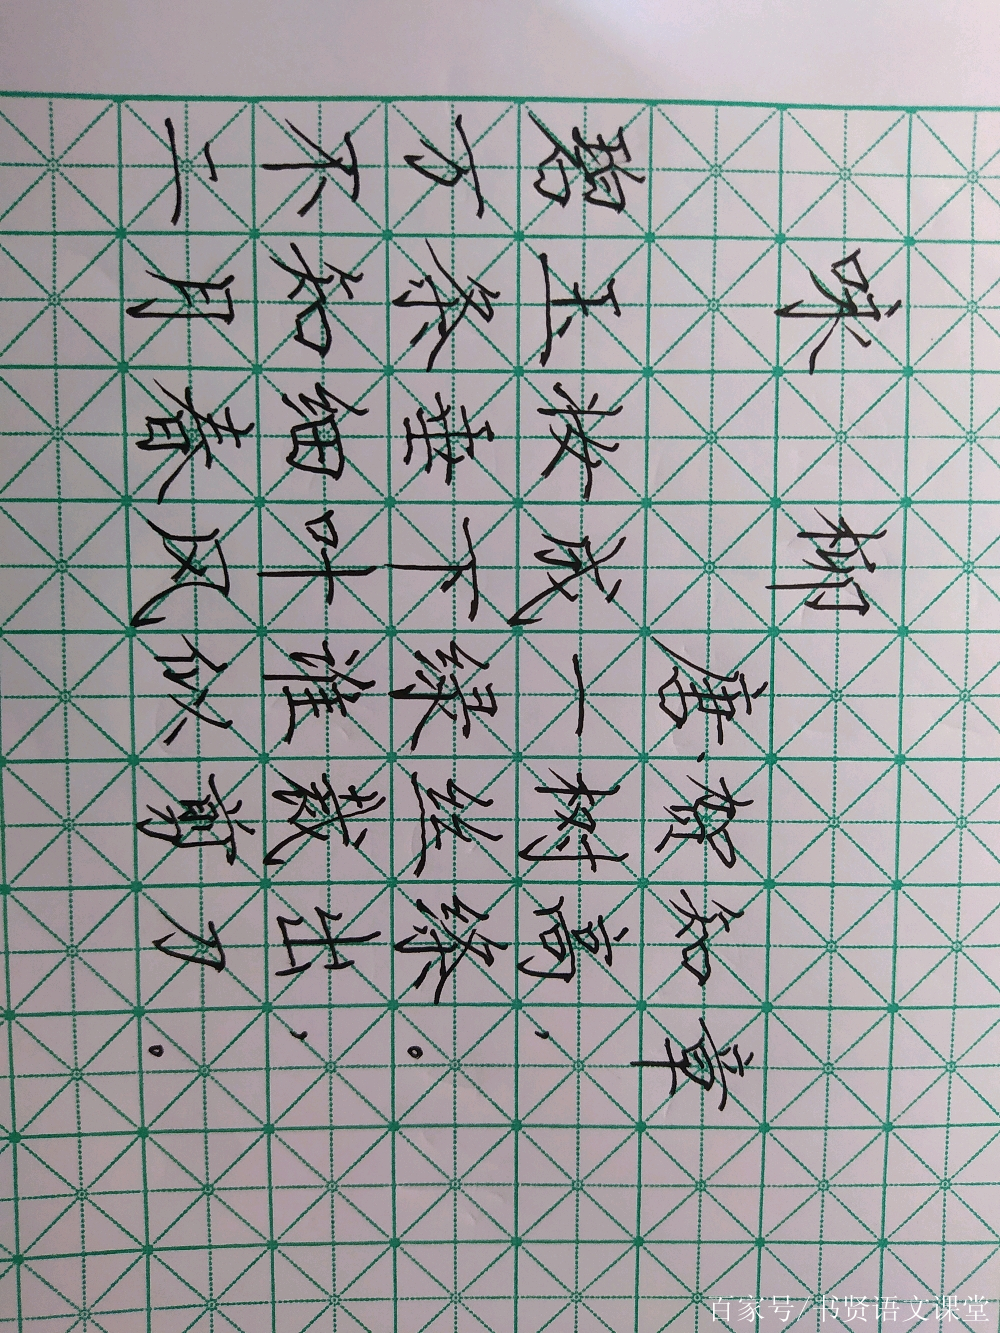 咏柳
唐·贺知章
碧玉妆成一树高，
万条垂下绿丝绦。
不知细叶谁裁出，
二月春风似剪刀。
百家号/书贤语文课堂